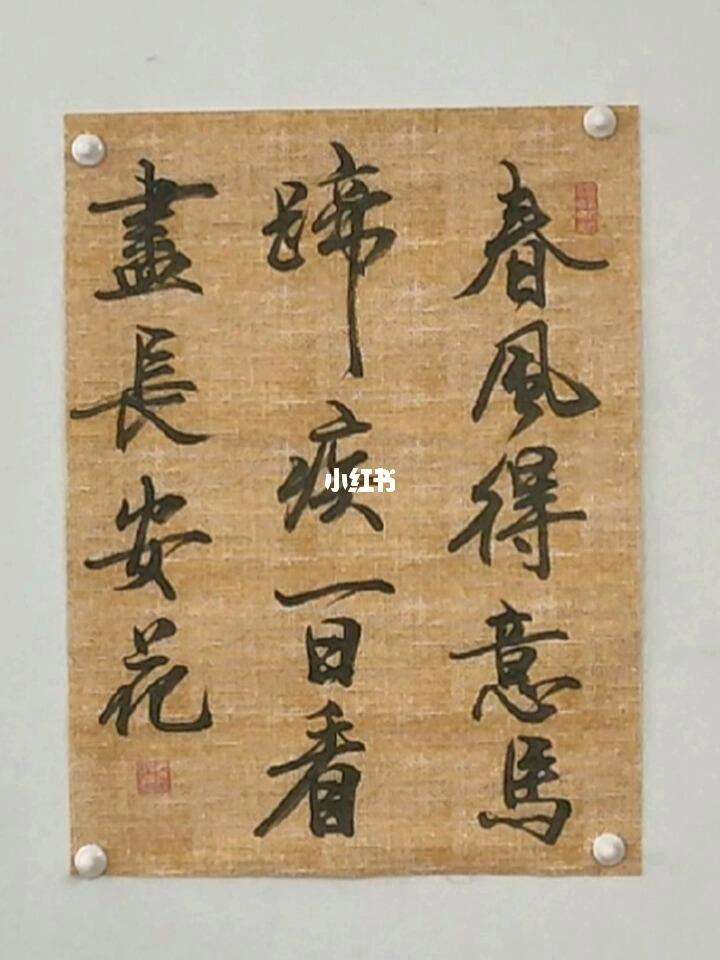 春風得意馬
蹄疾一日看
盡長安花
小红书